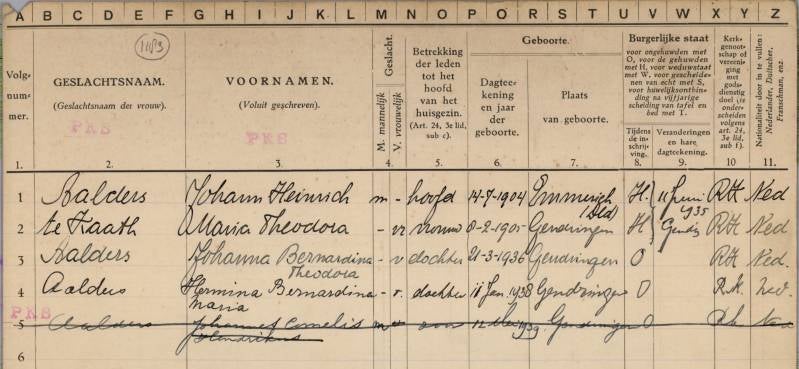 A B C D E F G H I J K L M N O P Q R S T U V W X Y Z
1183
Volg-
num-
mer.
GESLACHTSNAAM.
(Geslachtsnaam der vrouw.)
PKS
VOORNAMEN.
(Voluit geschreven).
PKS
Geslacht.
M. mannelijk
V. vrouwelijk
Betrekking
der leden
tot het
hoofd
van het
huisgezin.
(Art. 24, 3e lid,
sub c).
Geboorte.
Dagtee-
kening
en jaar
der
geboorte.
Plaats
van geboorte.
Burgerlijke staat
voor ongehuwden met
O, voor de gehuwden
met H, voor weduwstaat
met W, voor gescheide-
nen van echt met S,
voor huwelijksontbin-
ding na vijfjarige
scheiding van tafel en
bed met T.
Tijdens
de in-
schrij-
ving.
Veranderingen
en hare
dagteekening.
Kerk-
genoot-
schap of
vereeni-
ging
met
gods-
dienstig
doel (te
onder-
scheiden
volgens
art. 24,
3e lid,
sub f).
Nationaliteit door in te vullen:
Nederlander, Duitscher,
Franschman, enz.
1. 2. 3. 4. 5. 6. 7. 8. 9. 10 11.
1 Aalders Johann Heinrich m - hoofd 14-7-1904 Emmerich (Dld) H. 11 Juni 1935 RK Ned
2 te Kaath Maria Theodora - vr vrouw 8-2-1905 Gendringen H Gendr. RK Ned
3 Aalders Johanna Bernardina - v dochter 21-3-1936 Gendringen O RK Ned.
Theodora
4 Aalders Hermina Bernardina - v. dochter 18 Jan. 1938 Gendringen O R.k. Ned.
Maria
PKS
5 Aalders Johannes Cornelis m zoon 12 1939 Gendringen O Rk Ned
Hendrikus
6